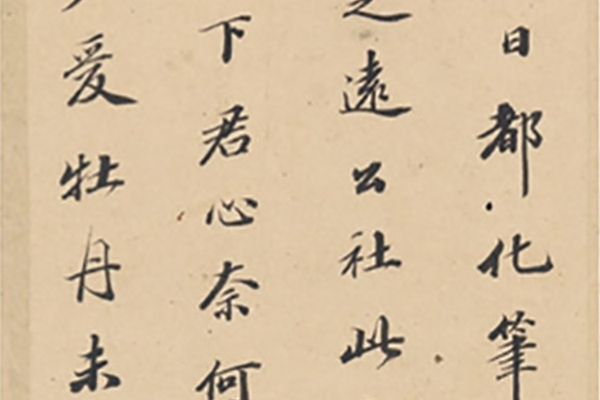 日都化筆
遠公社此
下君心奈何
愛牡丹未